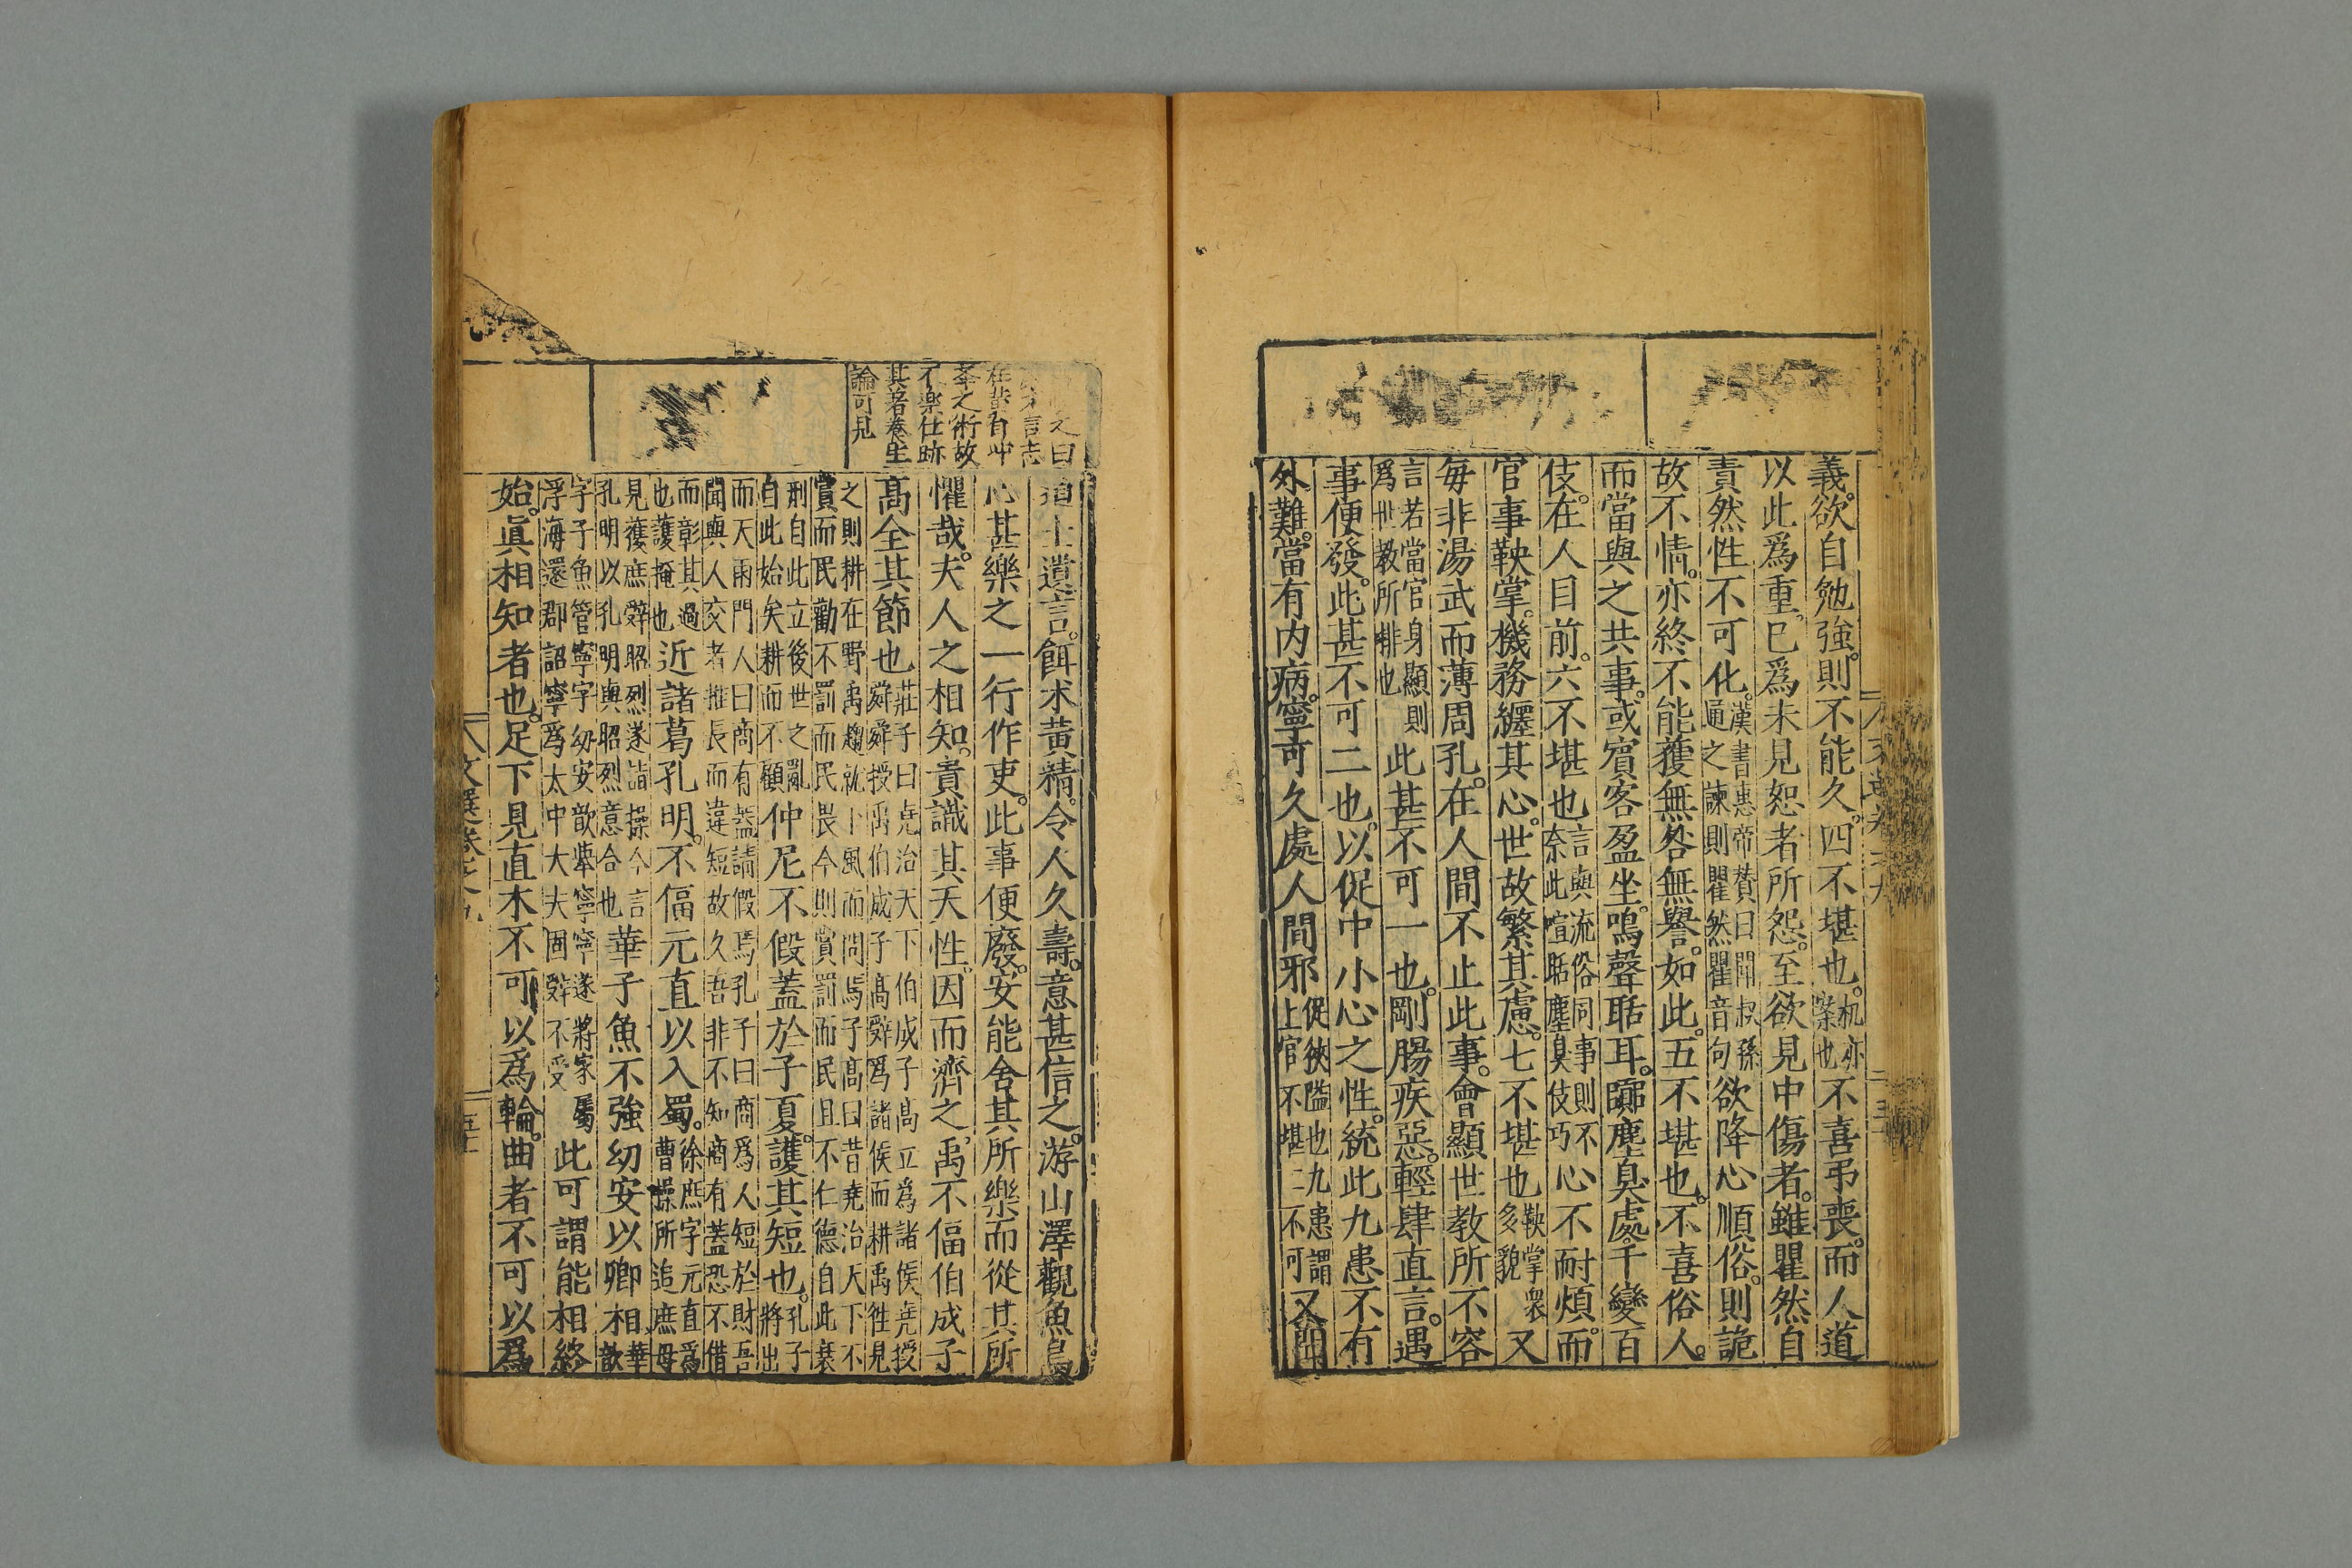 義。欲自勉強。則不能久。四不堪也。机亦案也不喜弔喪。而人道
以此爲重。已爲未見恕者所怨。至欲見中傷者。雖瞿然自
責然性不可化。漢書惠帝贊曰聞叔孫通之諫則瞿然瞿音句欲降心順俗。則詭
故不情。亦終不能獲無咎無譽。如此。五不堪也。不喜俗人。
而當與之共事。或賓客盈坐。鳴聲聒耳。囂塵臭處。千變百
伎。在人目前。六不堪也言與流俗同事則不奈此喧聒塵臭伎巧心不耐煩。而
官事鞅掌。機務纒其心。世故繁其慮。七不堪也鞅掌衆多貌又
每非湯武而薄周孔。在人間不止此事。會顯世教所不容
言若當官身顯則爲世教所非也此甚不可一也。剛腸疾惡。輕肆直言。遇
事便發。此甚不可二也。以促中小心之性。統此九患不有
外難。當有内病。寧可久處人間邪促狹隘也九患謂上官不堪二不可又聞
之曰
言志
不樂仕跡
其著養生
論可見
道士遺言。餌朮黃精。令人久壽。意甚信之。游山澤觀魚鳥
心甚樂之一行作吏。此事便廢。安能舍其所樂而從其所
懼哉。夫人之相知。貴識其天性。因而濟之。禹不偪伯成子
高全其節也莊子曰堯治天下伯成子高立爲諸侯堯授舜舜授禹伯成子高辭爲諸侯而耕禹往見
之則耕在野禹趨就下風而問焉子高曰昔堯治天下不賞而民勸不罰而民畏今則賞罰而民且不仁德自此衰
刑自此立後世之亂自此始矣耕而不顧仲尼不假蓋於子夏。護其短也。孔子將出
而天雨門人曰商有蓋請假焉孔子曰商爲人短於財吾聞與人交者推長而違短故久吾非不知商有蓋恐不借
而彰其過也護掩也近諸葛孔明。不偪元直以入蜀。徐庶字元直爲曹操所追庶母
見獲庶辭昭烈遂詣操今言孔明以孔明與昭烈意合也華子魚不強幼安以卿相華歆
字子魚管寧字幼安歆舉寧寧遂將家屬浮海還郡詔寧爲太中大夫固辭不受此可謂能相終
始。眞相知者也。足下見直木不可以爲輪。曲者不可以爲